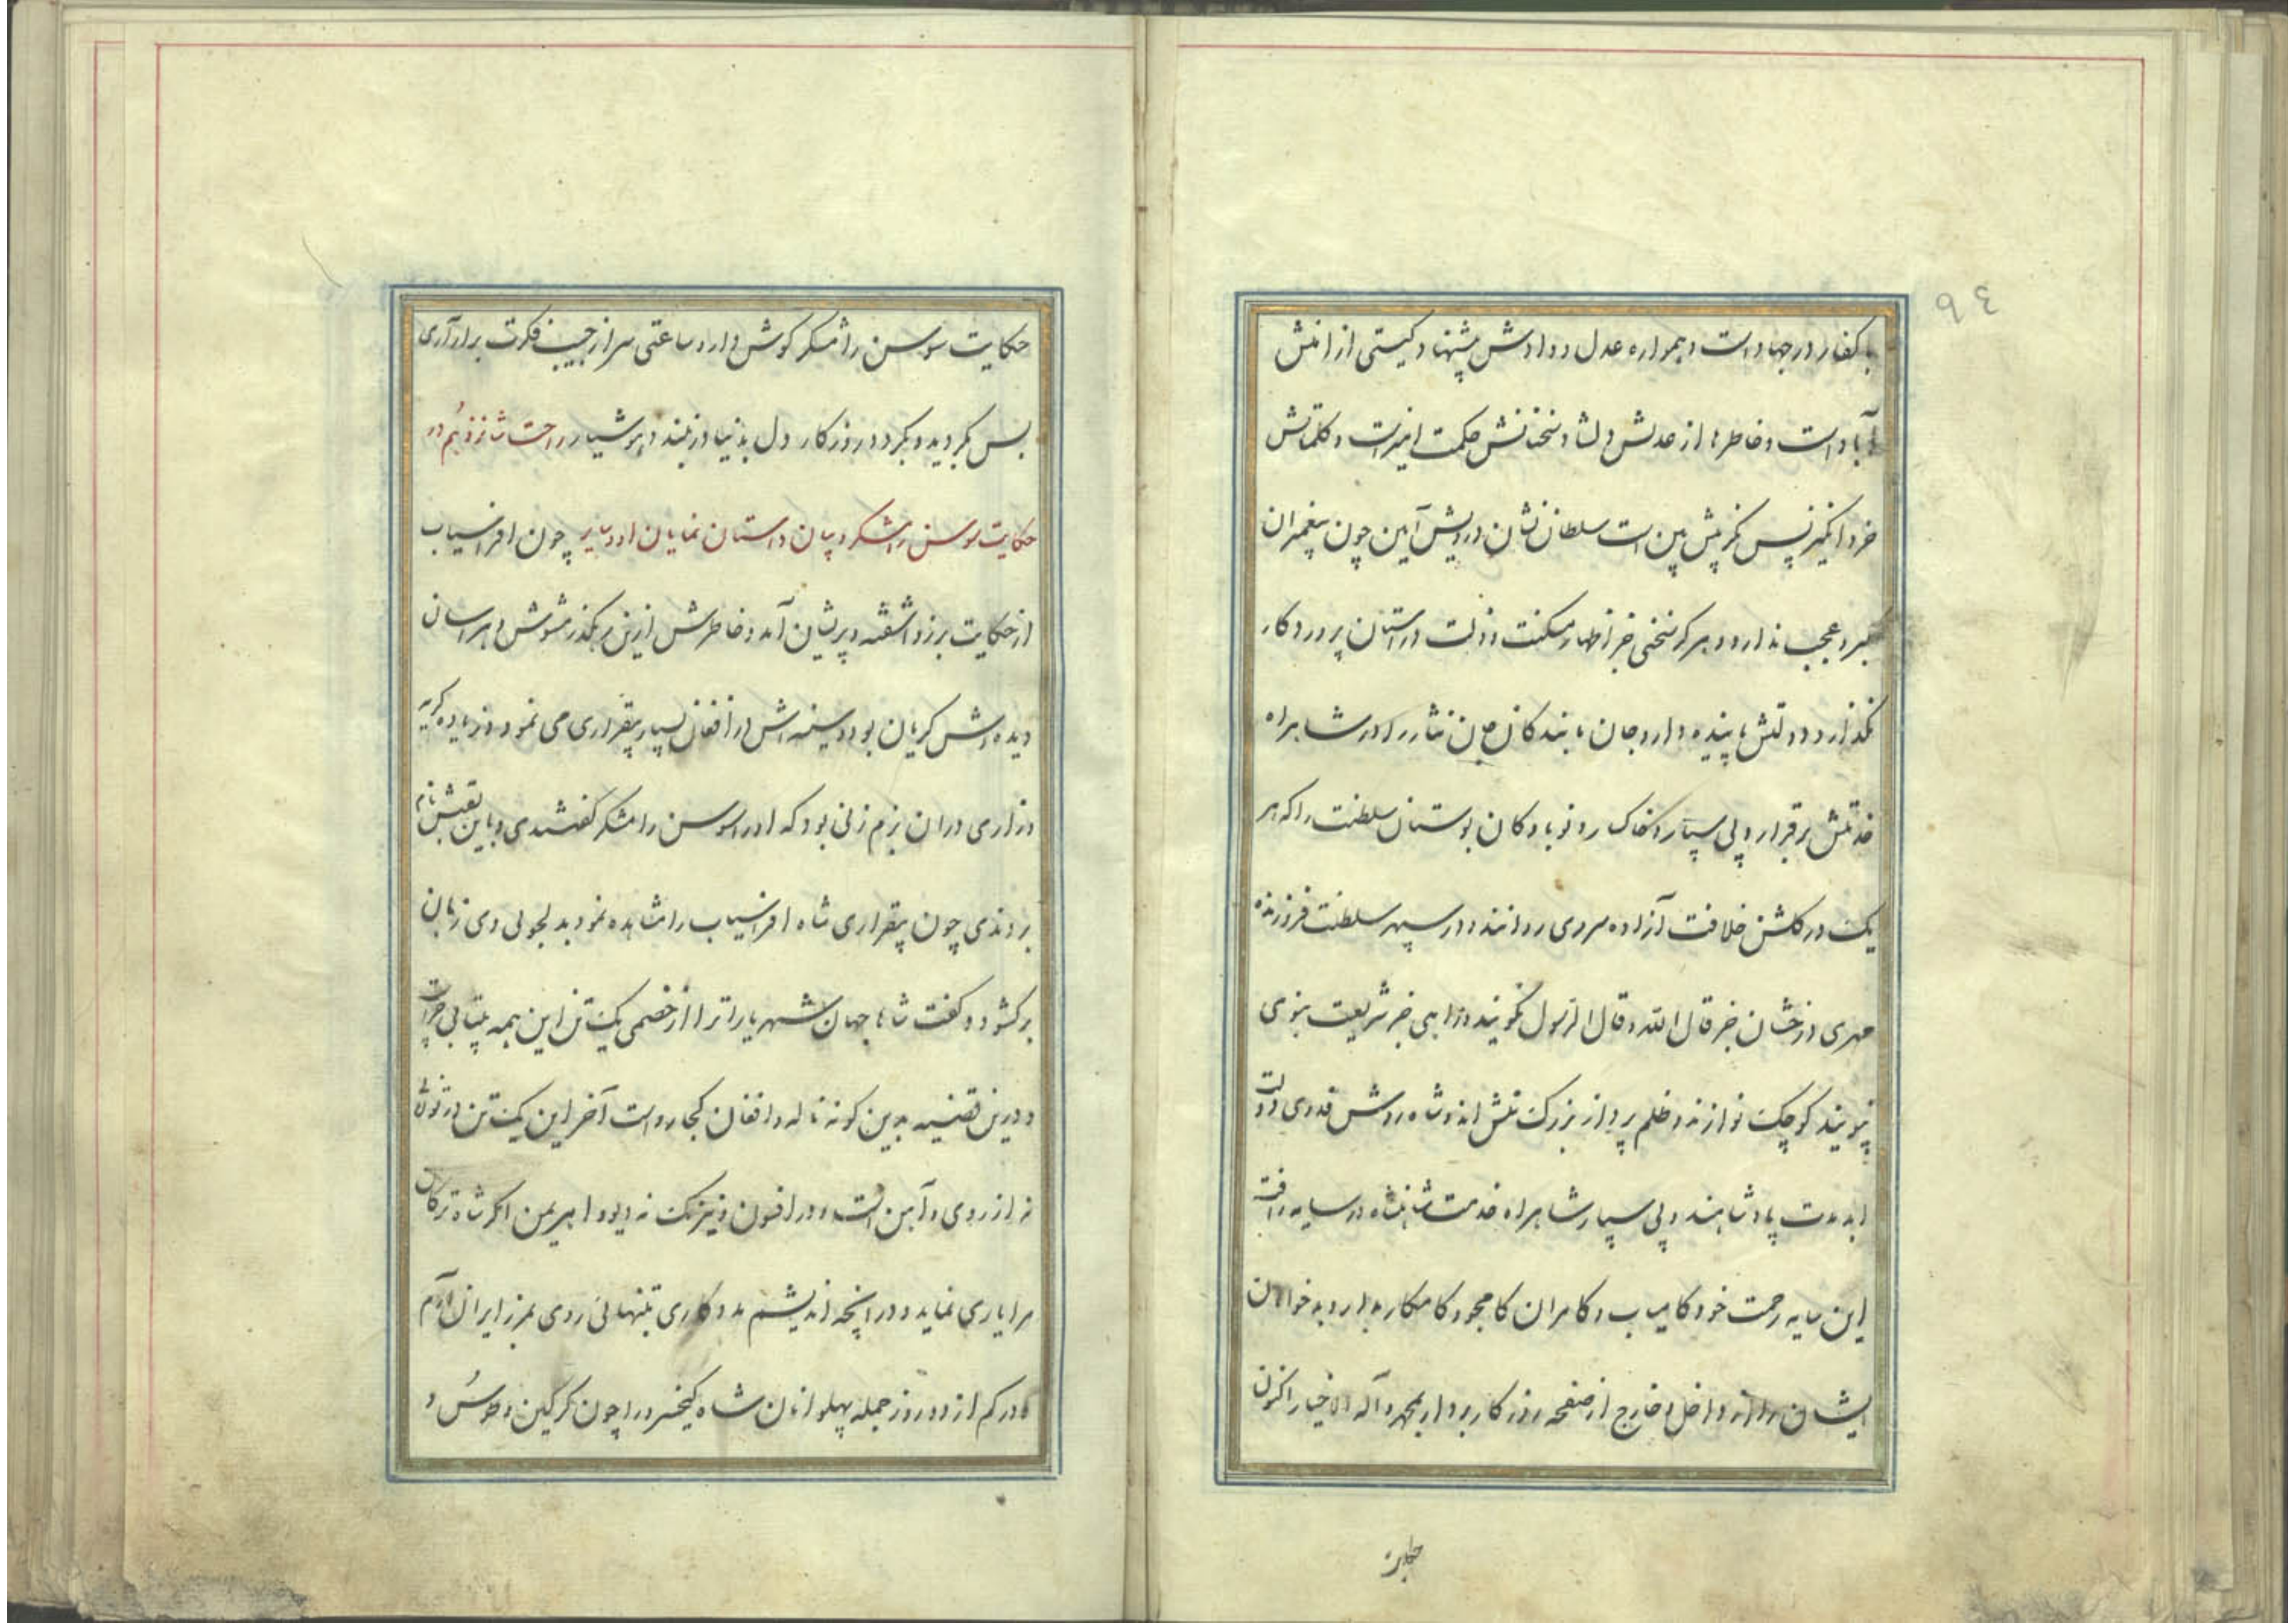 ٩٤
با کفار در جهاد است و همواره عدل و دادش پیشنهاد و گیتی از امنش
آباد است و خاطرها از عدلش دلشاد سخنانش حکمت امیزست و کلماتش
خرد انگیز نپس نگر پیش بین است سلطان نشان درویش آیین چون پیغمبران
کبر و عجب ندارد و هرگز سخنی جز اظهار مسکنت و ذلت در استان پروردگار
نگذارد دولتش پاینده دارد و جان ما بندگان جان نثار را در شاهراه
خدمتش برقرار و پی سپار و خاک ره و نوباوگان بوستان سلطنت را که هر
یک در گلشن خلافت آزاده سروی روانند و در سپهر سلطنت فروزنده
مهری درخشان جز قال الله و قال الرسول نگویند و راهی جز شریعت نبوی
نپویند کوچک نوازند و ظلم پرداز بزرگ منش اند و شاه روش قدوی دولت
ابد مدت پادشاهند و پی سپار شاهراه خدمت شاهنشاه در سایه رافت
این سایه رحمت خود کامیاب و کامران کامجو و کامکار بدارد و بدخواهان
ایشان را از داخل و خارج از صفحه روزگار بردارد بمحمد و آله الاخیار اکنون
حکایت
حکایت سوسن رامشگر گوش دار و ساعتی سر از جیب فکرت برار آری
بس گردید و بگردد روزگار دل بدنیا در نبندد هوشیار راحت شانزدهم در
حکایت سوسن رامشگر و پیان داستان نمایان او دربار چون افراسیاب
از حکایت برزو اشفته و پریشان آمد و خاطرش ازین رهگذر مشوش و هراسان
دیده اش گریان بود و سینه اش در افغان بسیار بیقراری می نمود و زیاده گریه
و زاری در ان بزم زنی بود که او را سوسن رامشگر گفتندی و باین لقبش نام
بردندی چون بیقراری شاه افراسیاب را مشاهده نمود بدلجوئی وی زبان
برگشود و گفت شاها جهان شهریارا ترا از خصمی یک تن این همه بیتابی چراست
و درین قضیه بدین گونه ناله و افغان کجا رواست آخر این یک تن در توش
نه از روی و آهن است و در افسون و نیرنگ نه دیو و اهریمن اگر شاه ترکان
مرا یاری نماید و در انچه اندیشم مددکاری بتنهائی روی بمرز ایران آرم
و در کم از دو روز جمله پهلوانان شاه کیخسرو را چون گرگین و طوس و